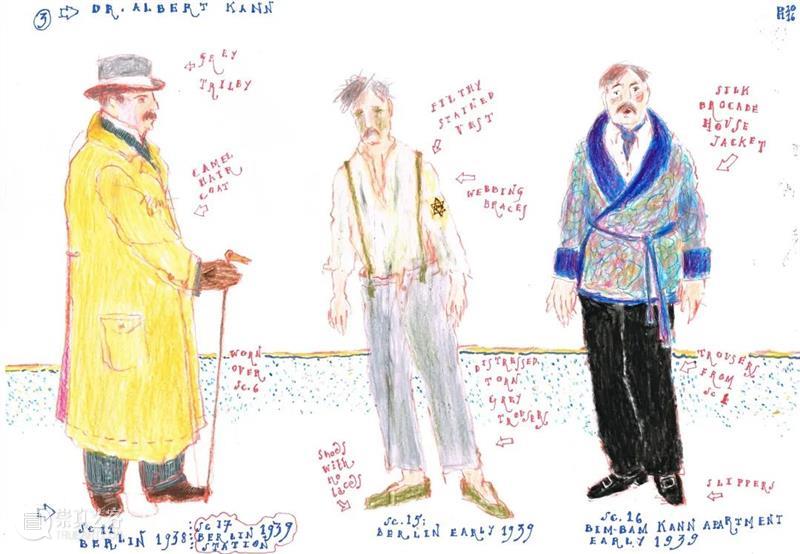 3 DR. ALBERT KANN
20
16
GREY
TRILBY
CAMEL
HAIR
COAT
WORN
OVER
SC. 6
FILTHY
STAINED
VEST
WEBBING
BRACES
DISTRESSED
TORN
GREY
TROUSERS
SHOES
WITH
NO
LACES
SILK
BROCADE
HOUSE
JACKET
TROUSERS
FROM
SC 1
SLIPPERS
BERLIN 1938
SC. 17
BERLIN 1939
STATION
SC. 15;
BERLIN EARLY 1939
SC. 16
BIM-BAM KANN APARTMENT
EARLY 1939